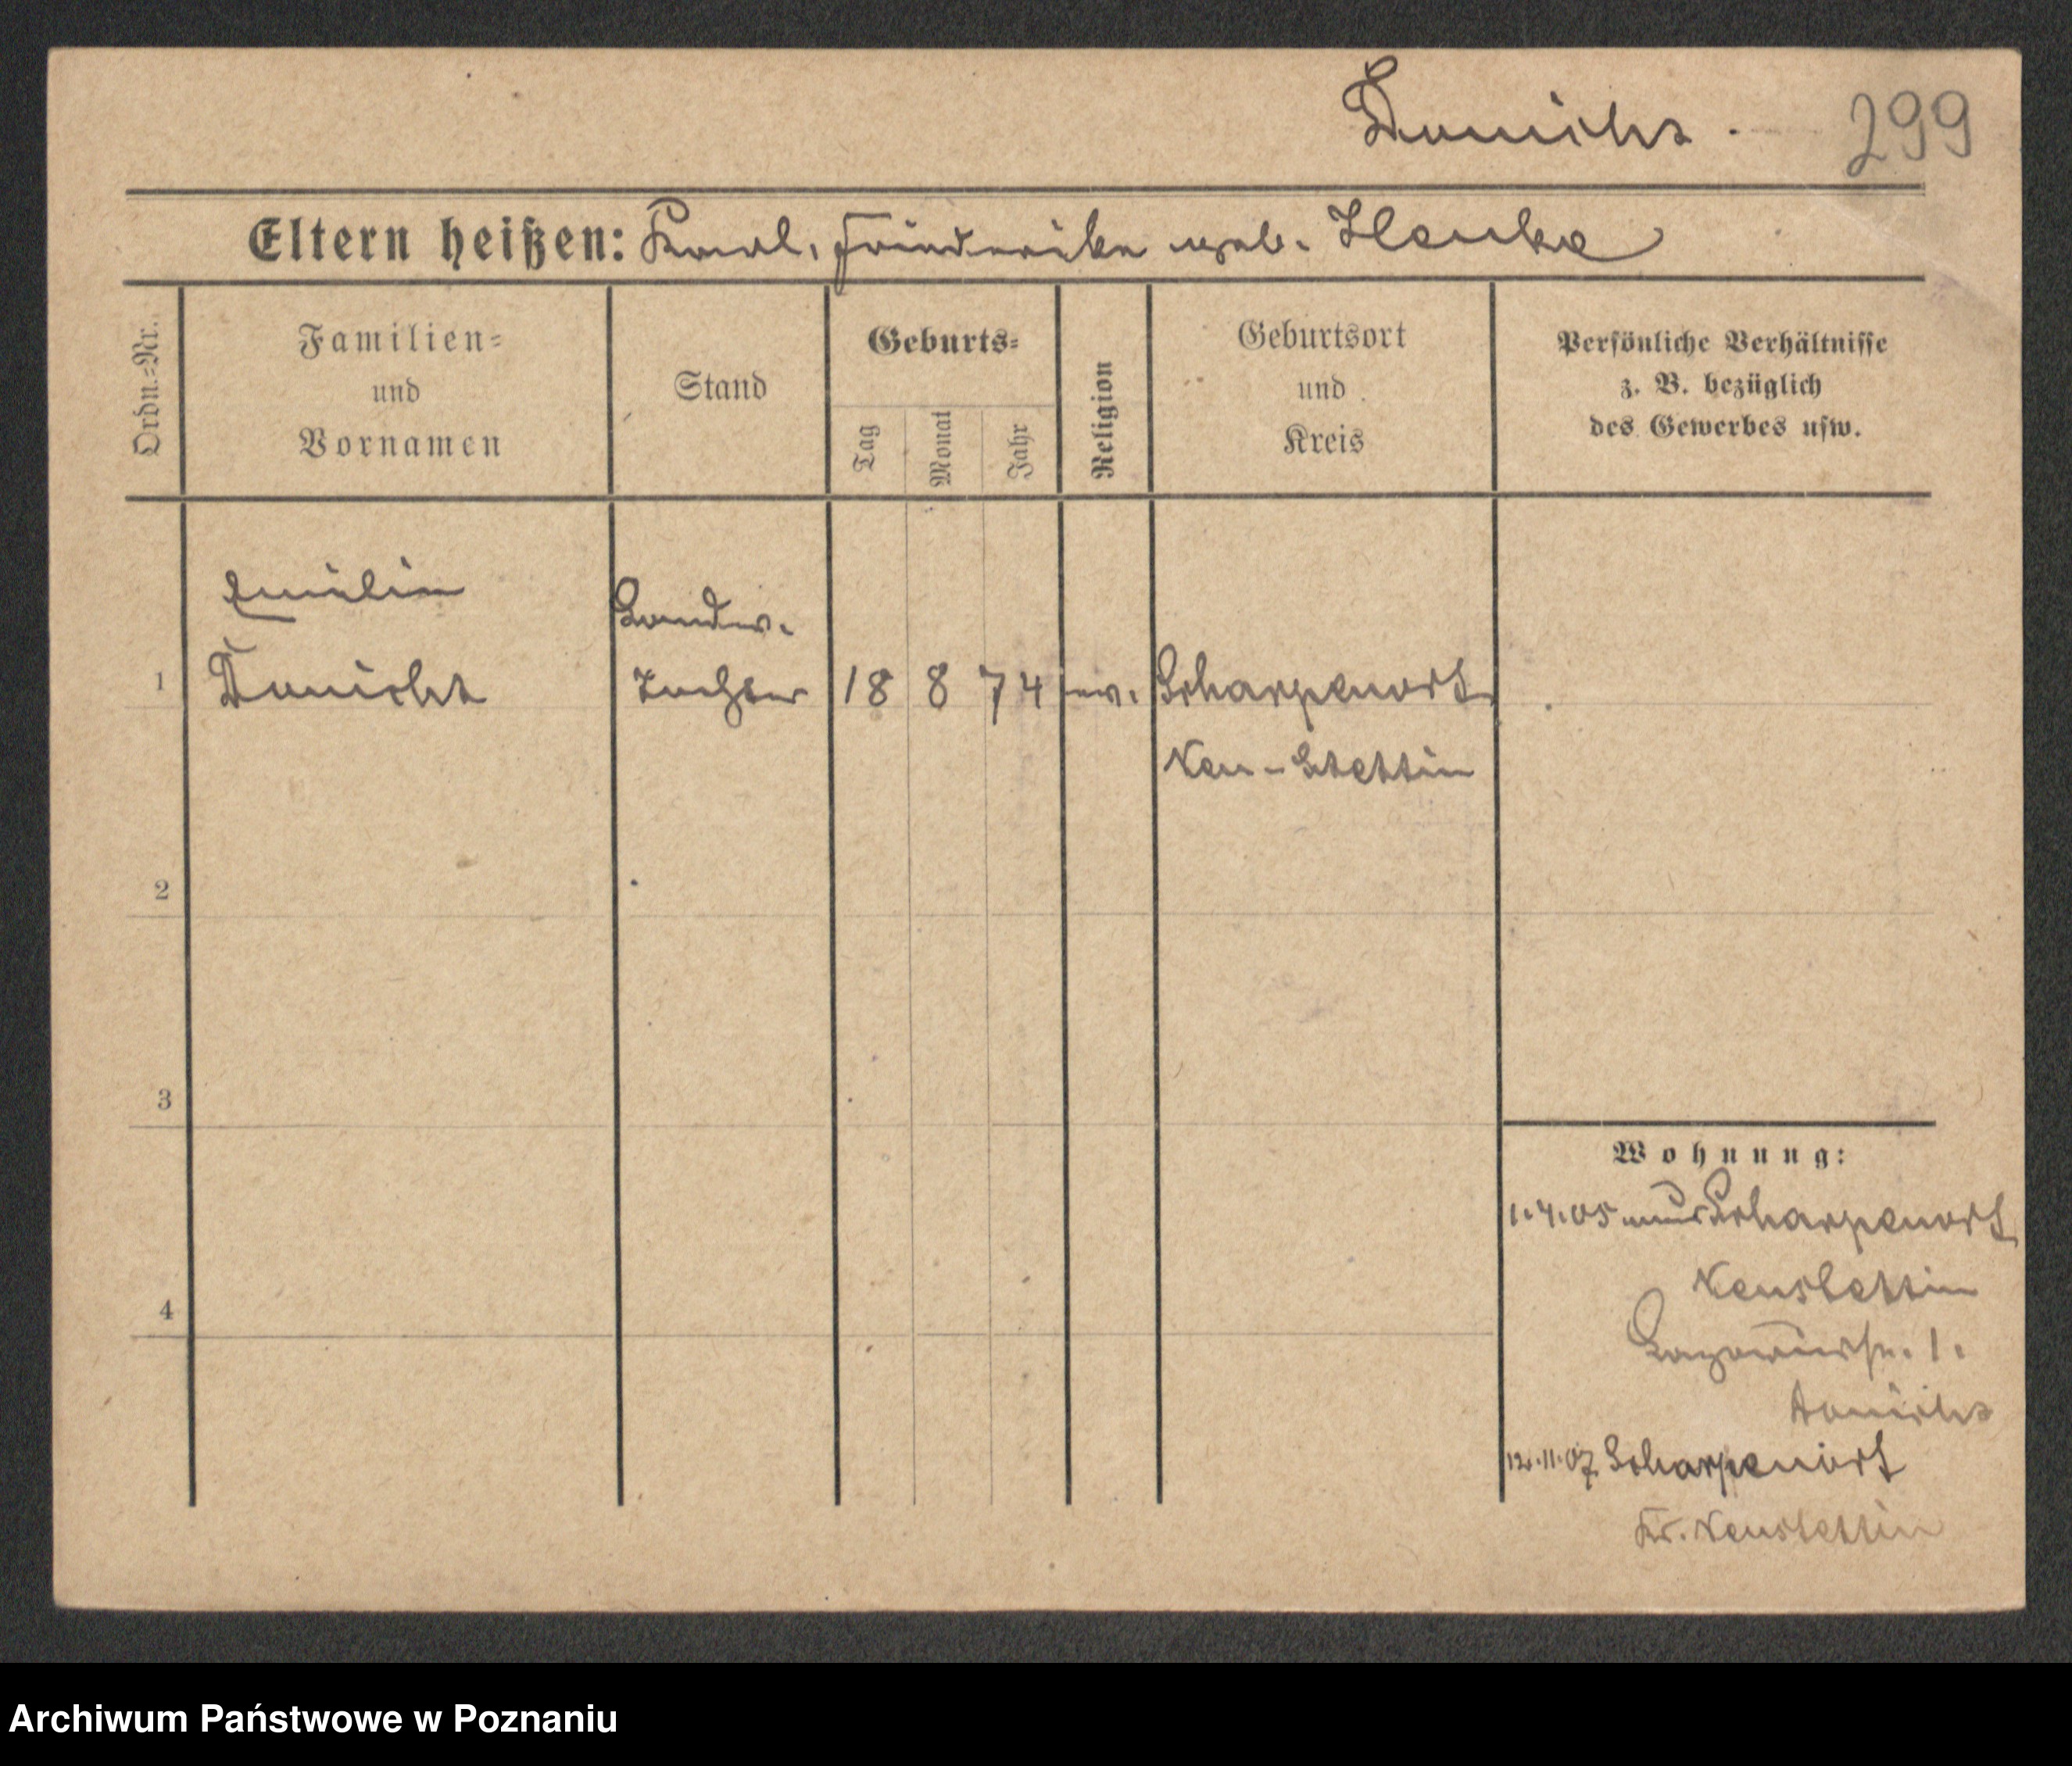 299
Eltern heißen: Karl, Friederike geb. Henke
Ordn.-Nr.
Familien-
und
Vornamen
Stand
Geburts-
Tag
Monat
Jahr
Religion
Geburtsort
und
Kreis
Persönliche Verhältnisse
z. B. bezüglich
des Gewerbes usw.
Emilie
Landw.
1 Tochter 18 8 74 ev. Scharpenort
Neu-Stettin
2
3
4
Wohnung:
1.4.05 aus Scharpenort
Neustettin
1.
12.11.07 Scharpenort
Kr. Neustettin
Archiwum Państwowe w Poznaniu